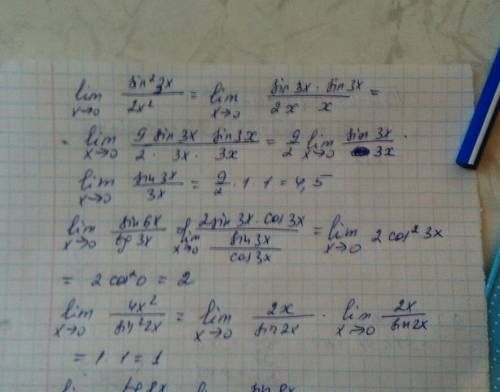 lim x→0 sin²3x / 2x² = lim x→0 sin 3x · sin 3x / 2x · x =
= lim x→0 9 sin 3x · sin 3x / 2 · 3x · 3x = 9/2 lim x→0 sin 3x / 3x ·
lim x→0 sin 3x / 3x = 9/2 · 1 · 1 = 4,5
lim x→0 sin 6x / tg 3x = lim x→0 2 sin 3x cos 3x / (sin 3x / cos 3x) = lim x→0 2 cos² 3x
= 2 cos² 0 = 2
lim x→0 4x² / sin² 2x = lim x→0 2x / sin 2x · lim x→0 2x / sin 2x
= 1 · 1 = 1